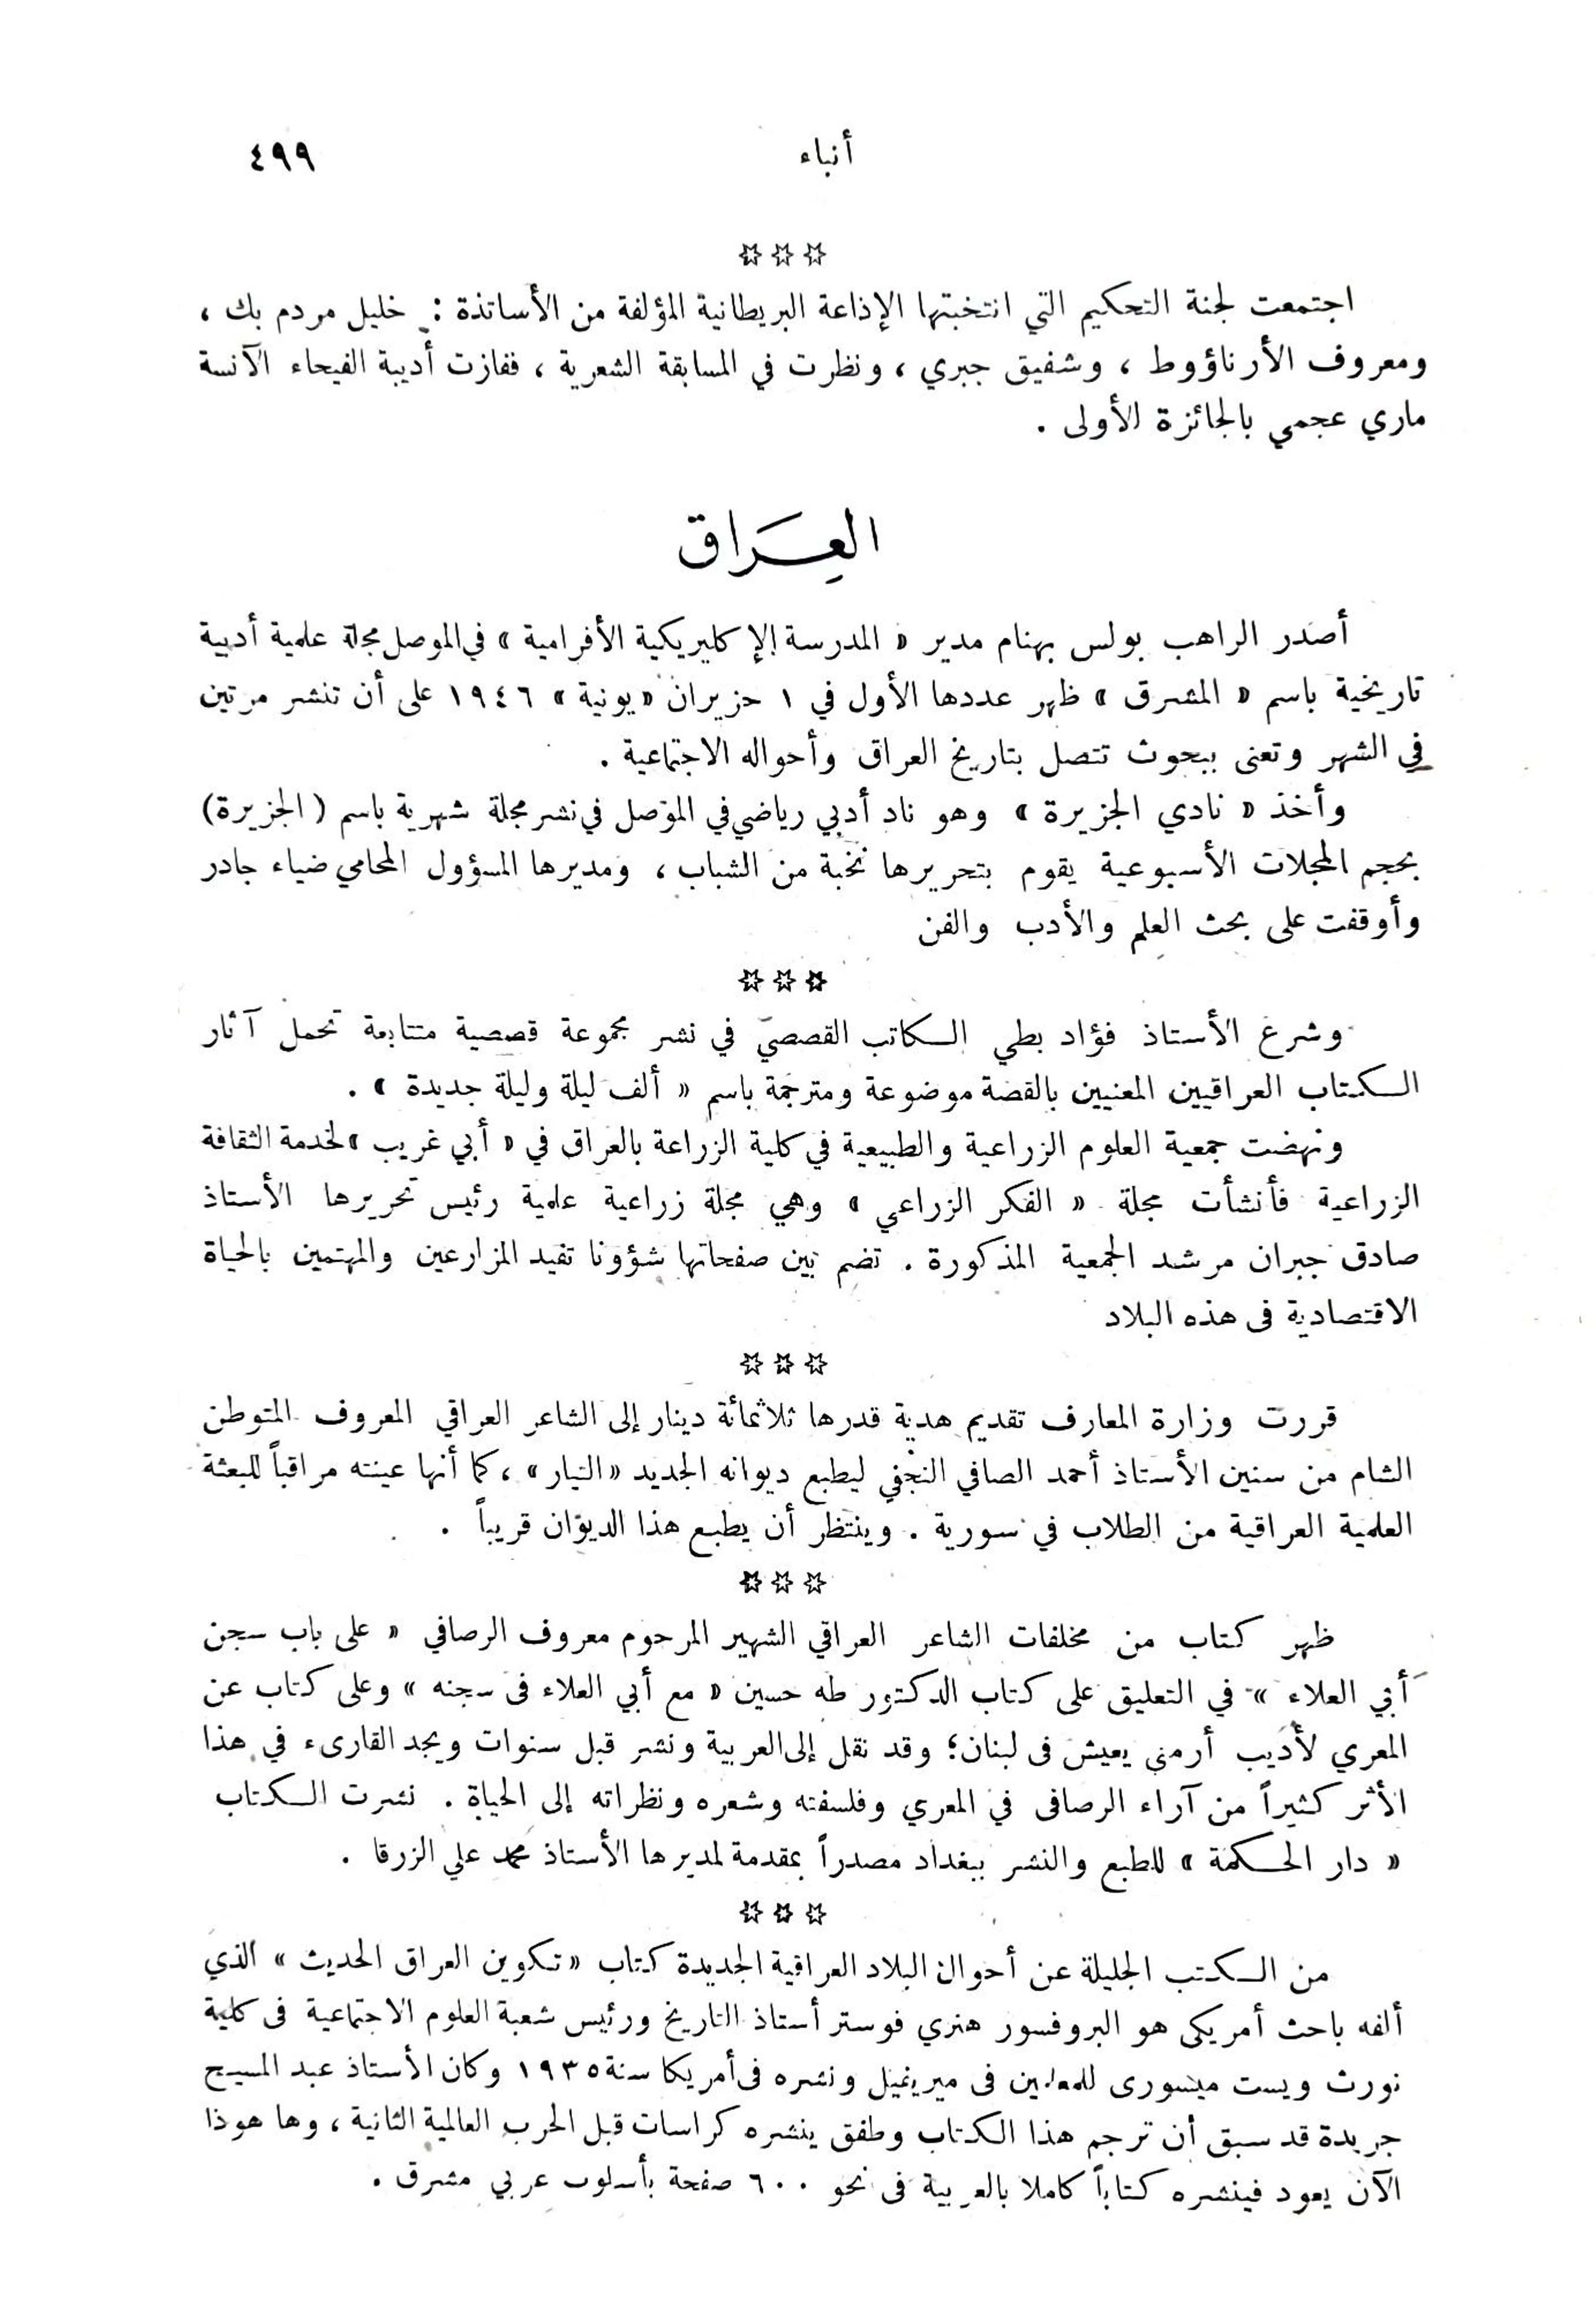 أنباء ٤٩٩
☆ ☆ ☆
اجتمعت لجنة التحكيم التي انتخبتها الإذاعة البريطانية المؤلفة من الأساتذة : خليل مردم بك ،
ومعروف الأرناؤوط ، وشفيق جبري ، ونظرت في المسابقة الشعرية ، ففازت أديبة الفيحاء الآنسة
ماري عجمي بالجائزة الأولى .
العِرَاق
أصدر الراهب بولس بهنام مدير « المدرسة الإكليريكية الأفرامية » في الموصل مجلة علمية أدبية
تاريخية باسم « المشرق » ظهر عددها الأول في ١ حزيران « يونية » ١٩٤٦ على أن تنشر مرتين
في الشهر وتعنى ببحوث تتصل بتاريخ العراق وأحواله الاجتماعية .
وأخذ « نادي الجزيرة » وهو ناد أدبي رياضي في الموصل في نشر مجلة شهرية باسم ( الجزيرة )
بحجم المجلات الأسبوعية يقوم بتحريرها نخبة من الشباب ، ومديرها المسؤول المحامي ضياء جادر
وأوقفت على بحث العلم والأدب والفن
☆ ☆ ☆
وشرع الأستاذ فؤاد بطي الكاتب القصصيّ في نشر مجموعة قصصية متتابعة تحمل آثار
الكتاب العراقيين المعنيين بالقصة موضوعة ومترجمة باسم « ألف ليلة وليلة جديدة » .
ونهضت جمعية العلوم الزراعية والطبيعية في كلية الزراعة بالعراق في « أبي غريب » لخدمة الثقافة
الزراعية فأنشأت مجلة « الفكر الزراعي » وهي مجلة زراعية علمية رئيس تحريرها الأستاذ
صادق جبران مرشد الجمعية المذكورة . تضم بين صفحاتها شؤونا تفيد المزارعين والمهتمين بالحياة
الاقتصادية فى هذه البلاد
☆ ☆ ☆
قررت وزارة المعارف تقديم هدية قدرها ثلاثمائة دينار إلى الشاعر العراقي المعروف المتوطن
الشام من سنين الأستاذ أحمد الصافي النجفي ليطبع ديوانه الجديد « التيار » ، كما أنها عينته مراقباً للبعثة
العلمية العراقية من الطلاب في سورية . وينتظر أن يطبع هذا الديوان قريباً .
☆ ☆ ☆
ظهر كتاب من مخلفات الشاعر العراقي الشهير المرحوم معروف الرصافي « على باب سجن
أبي العلاء » في التعليق على كتاب الدكتور طه حسين « مع أبي العلاء فى سجنه » وعلى كتاب عن
المعري لأديب أرمنى يعيش فى لبنان ؛ وقد نقل إلى العربية ونشر قبل سنوات ويجد القارىء في هذا
الأثر كثيراً من آراء الرصافى في المعري وفلسفته وشعره ونظراته إلى الحياة . نشرت الكتاب
« دار الحكمة » للطبع والنشر ببغداد مصدراً بمقدمة لمديرها الأستاذ محمد علي الزرقا .
☆ ☆ ☆
من الكتب الجليلة عن أحوال البلاد العراقية الجديدة كتاب « تكوين العراق الحديث » الذي
ألفه باحث أمريكى هو البروفسور هنري فوستر أستاذ التاريخ ورئيس شعبة العلوم الاجتماعية فى كلية
نورث ويست ميسورى للمعلمين فى ميريفيل ونشره فى أمريكا سنة ١٩٣٥ وكان الأستاذ عبد المسيح
جريدة قد سبق أن ترجم هذا الكتاب وطفق ينشره كراسات قبل الحرب العالمية الثانية ، وها هوذا
الآن يعود فينشره كتاباً كاملا بالعربية فى نحو ٦٠٠ صفحة بأسلوب عربي مشرق .